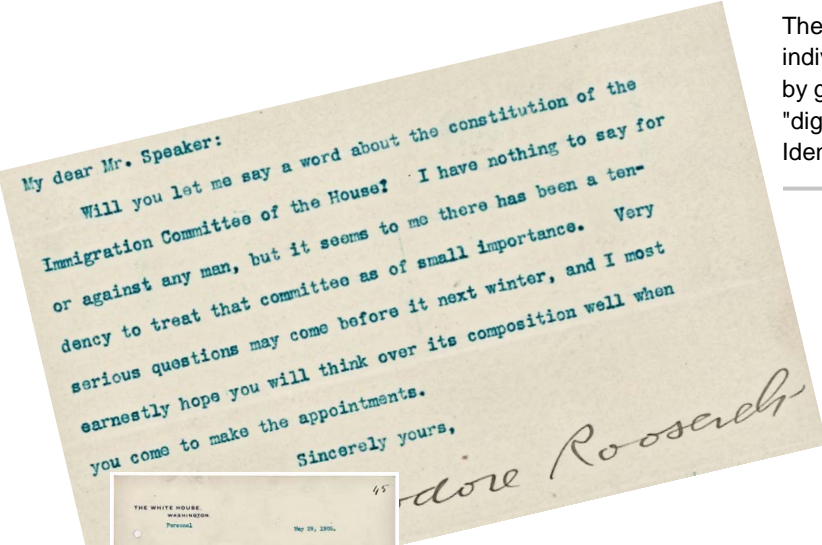 My dear Mr. Speaker:
Will you let me say a word about the constitution of the
Immigration Committee of the House? I have nothing to say for
or against any man, but it seems to me there has been a ten-
dency to treat that committee as of small importance. Very
serious questions may come before it next winter, and I most
earnestly hope you will think over its composition well when
you come to make the appointments.
Sincerely yours,
Roosevelt
45
THE WHITE HOUSE.
WASHINGTON
Personal
May 29, 1905.
The
by